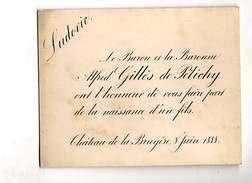 Ludovic.
Le Baron et la Baronne
Alfred Gillès de Pélichy
ont l'honneur de vous faire part
de la naissance d'un fils.
Château de la Bruyère, 8 Juin 1888.